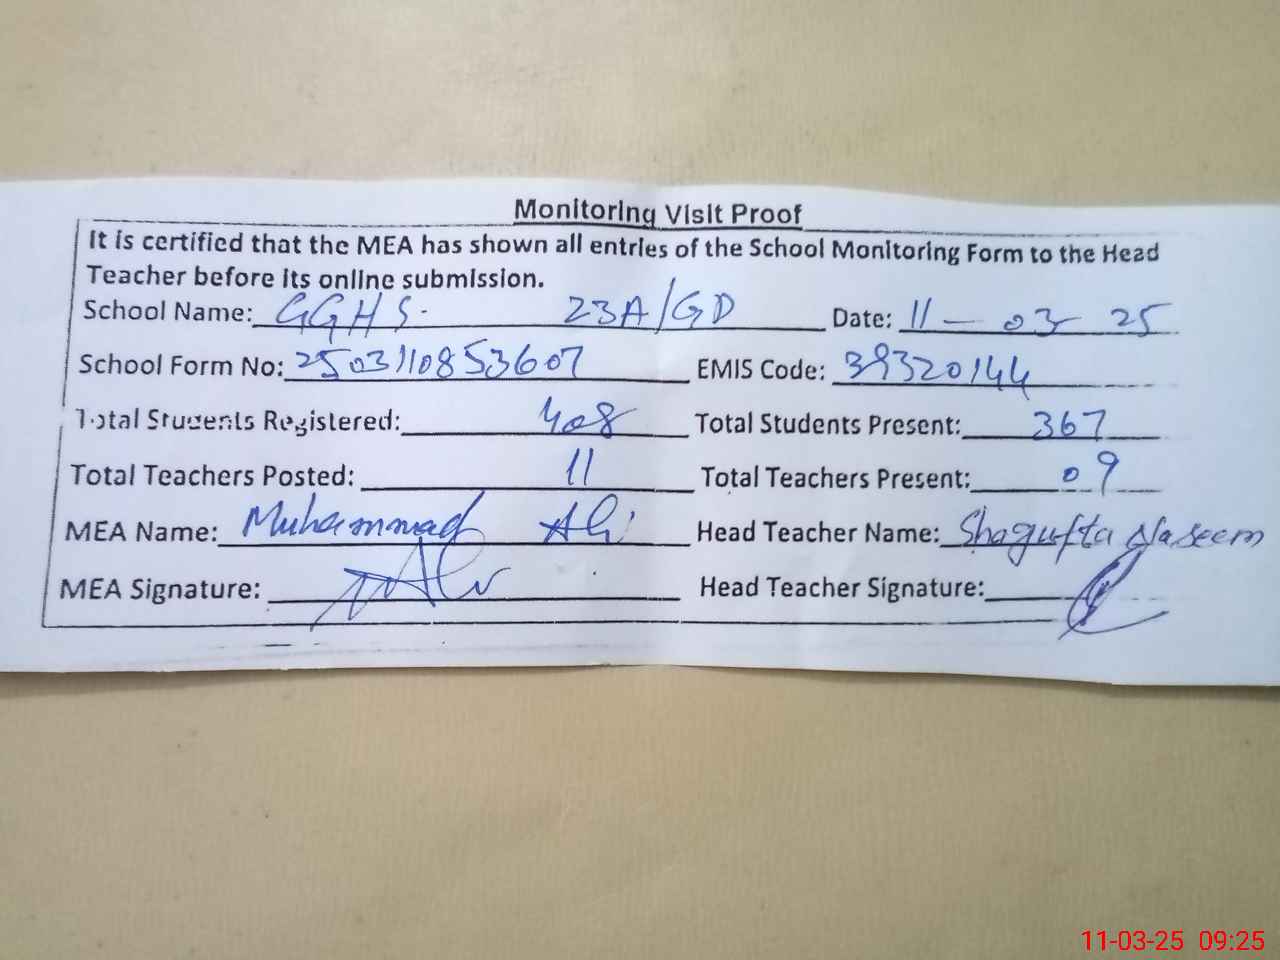 Monitoring Visit Proof
It is certified that the MEA has shown all entries of the School Monitoring Form to the Head
Teacher before its online submission.
School Name: GGHS. 23A/GD Date: 11-03-25
School Form No: 2503110853607 EMIS Code: 39320144
Total Students Registered: 408 Total Students Present: 367
Total Teachers Posted: 11 Total Teachers Present: 09
MEA Name: Muhammad Ali Head Teacher Name: Shagufta Naseem
MEA Signature: Head Teacher Signature:
11-03-25 09:25